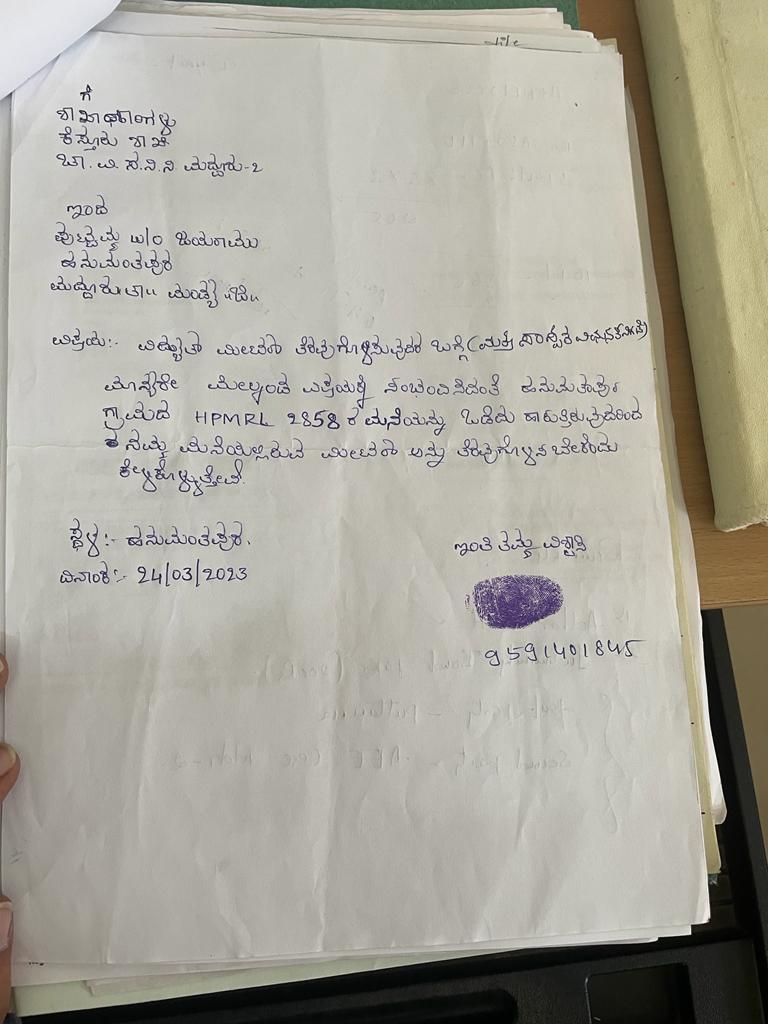 ಗೆ
ಶಾಖಾಧಿಕಾರಿಗಳು
ಕೆಸ್ತೂರು ಶಾಖೆ
ಚಾ. ವಿ. ಸ.ನಿ.ನಿ ಮದ್ದೂರು-2
ಇಂದ
ಪುಟ್ಟಮ್ಮ w/o ಜಯರಾಮು
ಹನುಮಂತಪುರ
ಮದ್ದೂರು ತಾ॥ ಮಂಡ್ಯ ॥ಜಿ॥
ವಿಷಯ:- ವಿದ್ಯುತ್ ಮೀಟರ್ ತೆರವುಗೊಳಿಸುವುದರ ಬಗ್ಗೆ (ಮತ್ತು
ಮಾನ್ಯರೇ ಮೇಲ್ಕಂಡ ವಿಷಯಕ್ಕೆ ಸಂಬಂದಿಸಿದಂತೆ ಹನುಮತಾಪುರ
ಗ್ರಾಮದ HPMRL 2858 ರ ಮನೆಯನ್ನು ಒಡೆದು ಹಾಕುತ್ತಿರುವುದರಿಂದ
ನಮ್ಮ ಮನೆಯಲ್ಲಿರುವ ಮೀಟರ್ ಅನ್ನು ತೆರವುಗೊಳಿಸ ಬೇಕೆಂದು
ಕೇಳಿಕೊಳ್ಳುತ್ತೇವೆ.
ಸ್ಥಳ:- ಹನುಮಂತಪುರ.
ಇಂತಿ ತಮ್ಮ ವಿಶ್ವಾಸಿ
ದಿನಾಂಕ:- 24/03/2023
9591401845